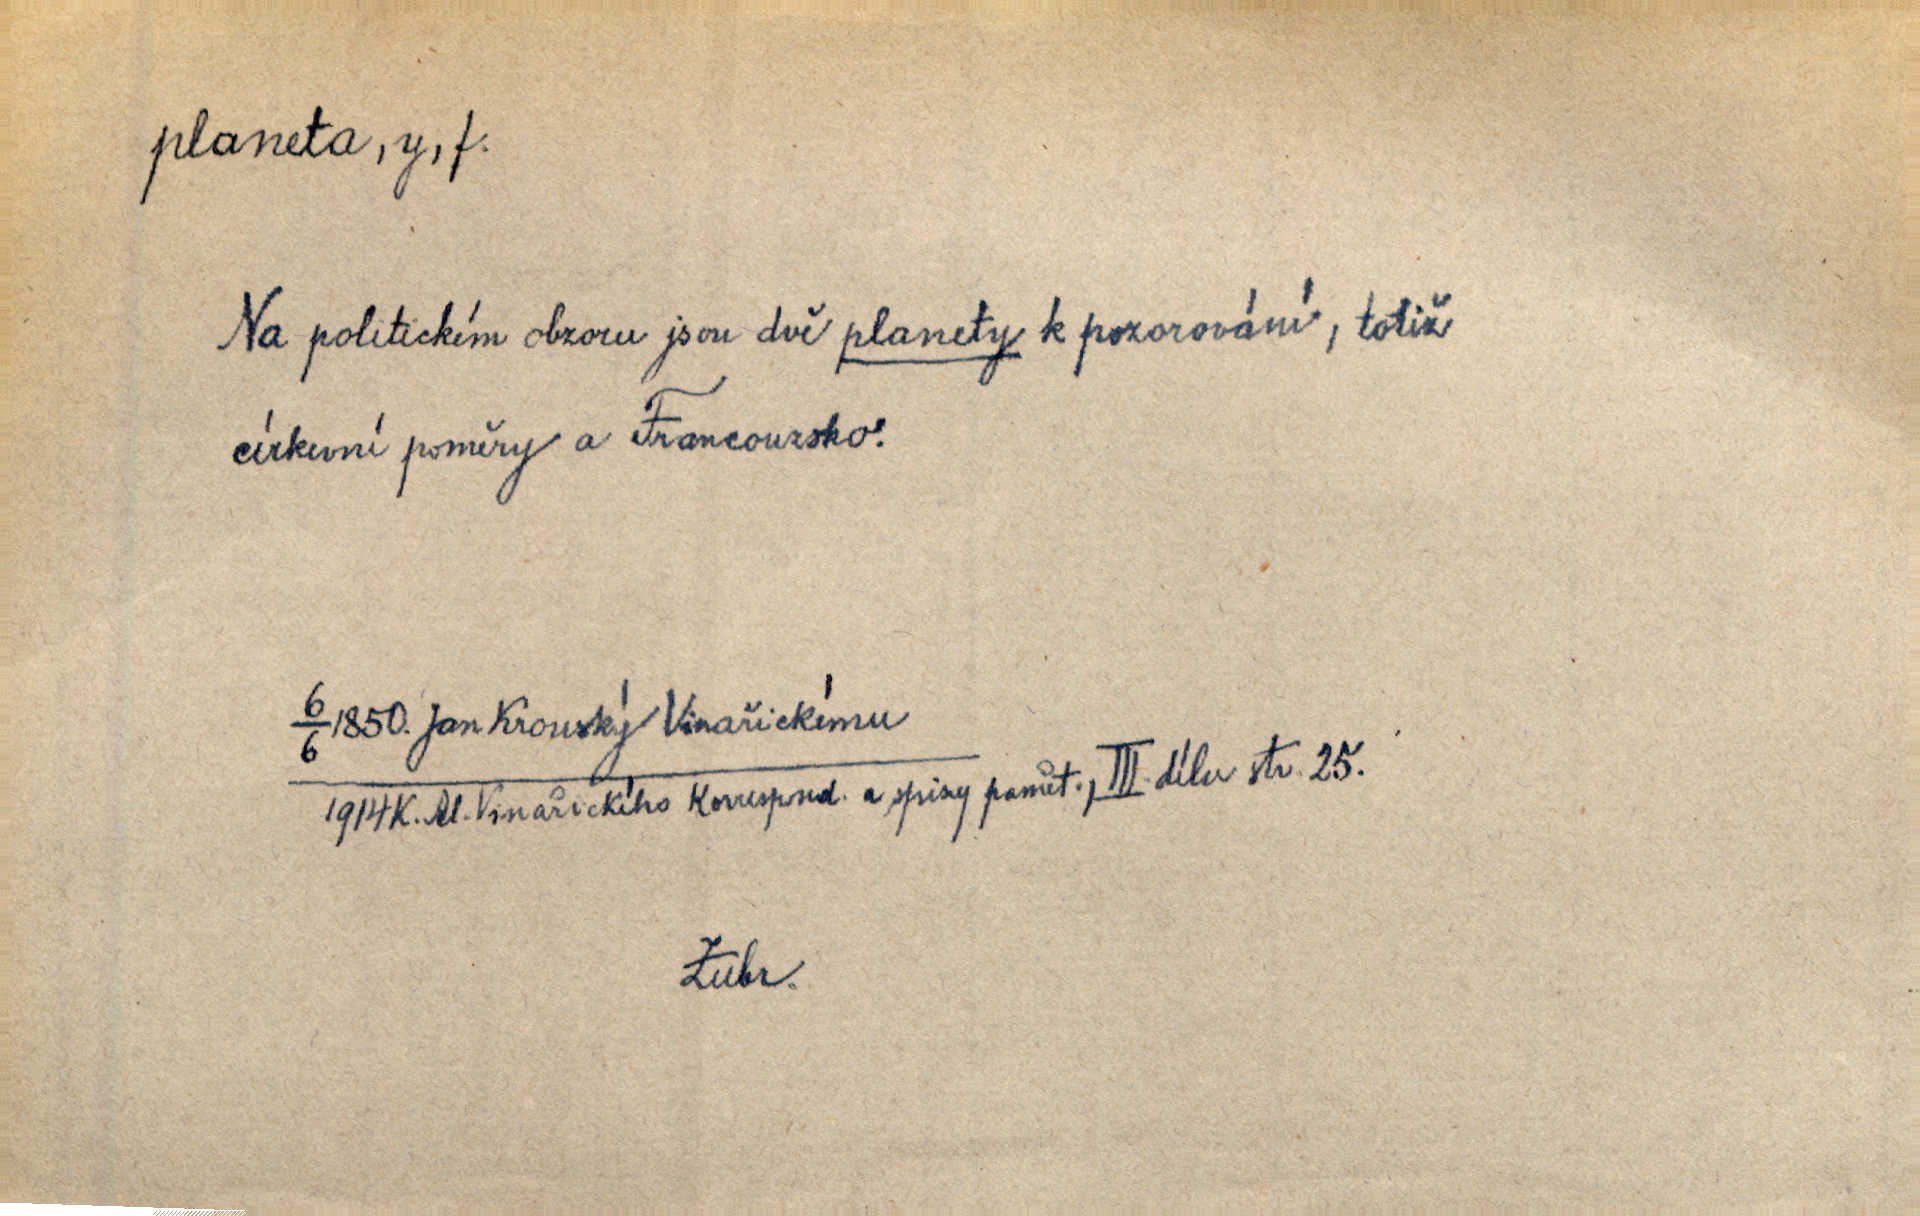 planeta, y, f.
Na politickém obzoru jsou dvě planety k pozorování, totiž
církevní poměry a Francouzsko.
6/6 1850. Jan Krouský Vinařickému
1914 K. Al. Vinařického Korrespond. a spisy pamět., III. dílu str. 25.
Žubr.